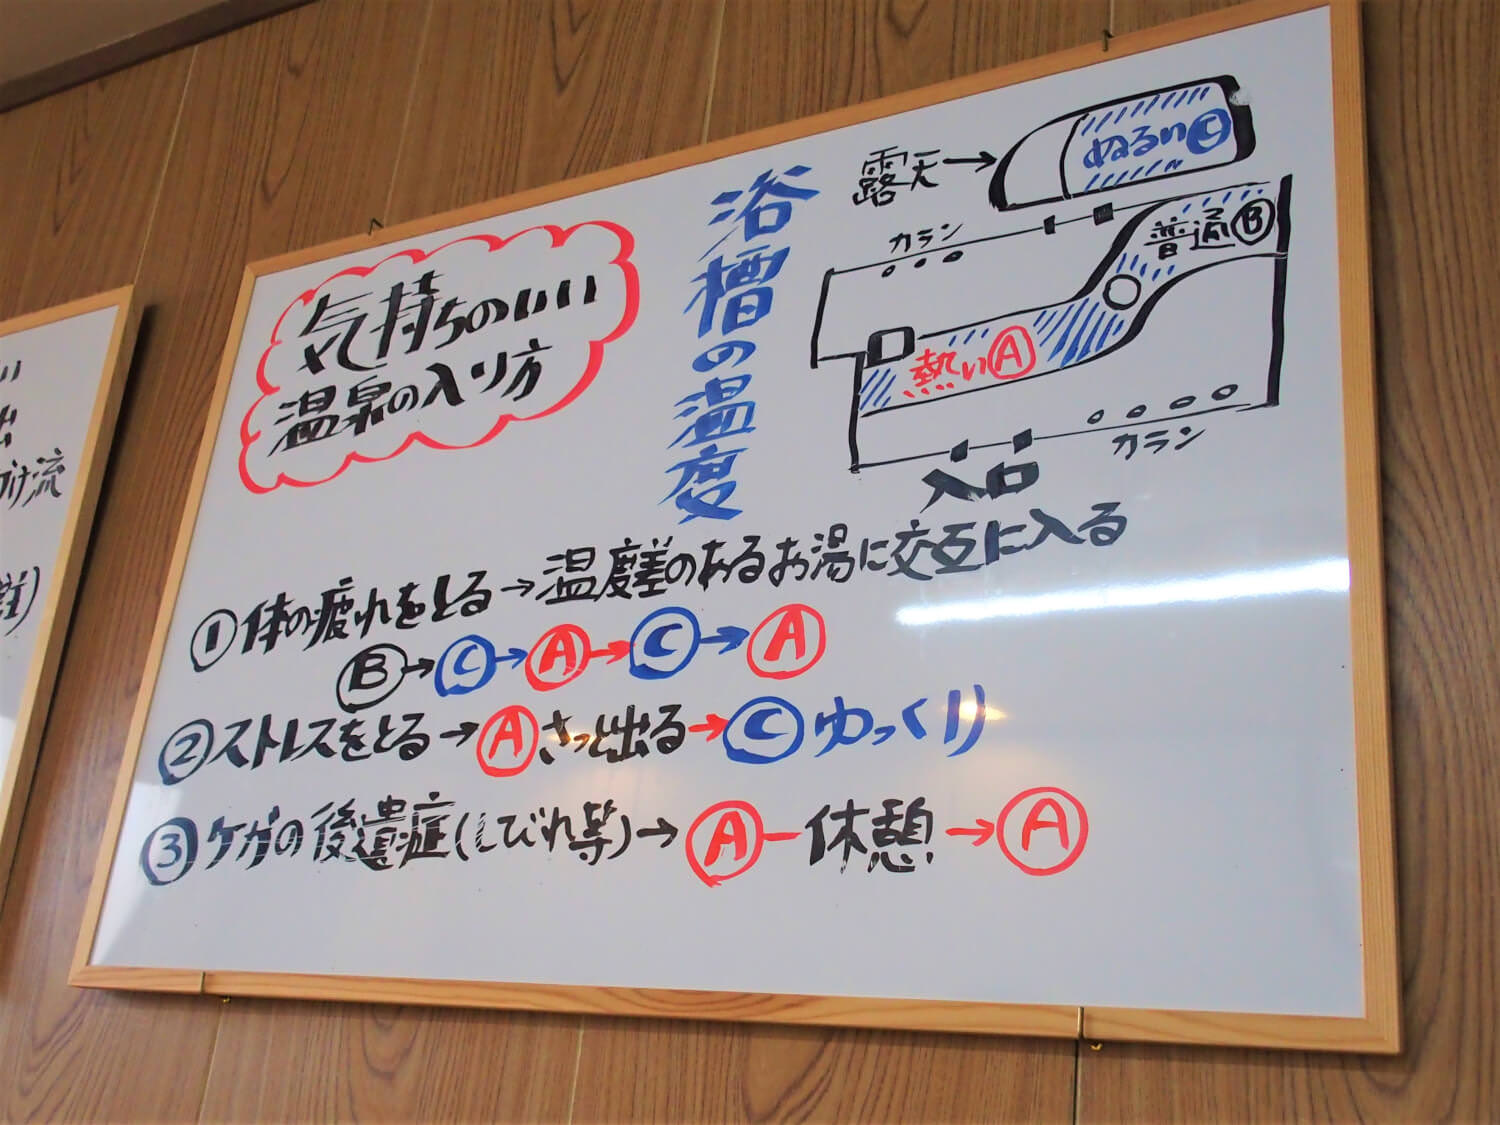 気持ちのいい
温泉の入り方
浴槽の温度
露天→
ぬるいⒸ
カラン
普通Ⓑ
熱いⒶ
カラン
入口
①体の疲れをとる→温度差のあるお湯に交互に入る
Ⓑ→Ⓒ→Ⓐ→Ⓒ→Ⓐ
②ストレスをとる→Ⓐさっと出る→Ⓒゆっくり
③ケガの後遺症(しびれ等)→Ⓐー休憩→Ⓐ
い
け流